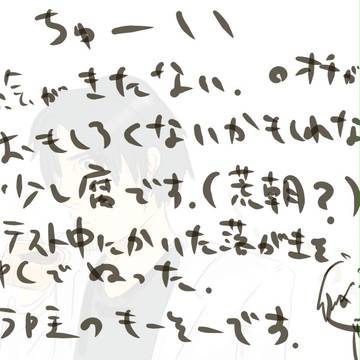 ちゅーい
がきたない. ○オチが
おもしろくないかもしれな
少し腐です.(荒朝?)
テスト中にかいた落がきを
PCでぬった.
う主のもーそーです.